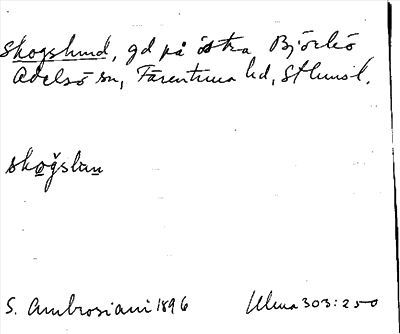 Skogslund, gd på östra Björkö
Adelsö sn, Färentuna hd, Sthlms l.
skoğslun
S. Ambrosiani 1896 Ulma 303:250